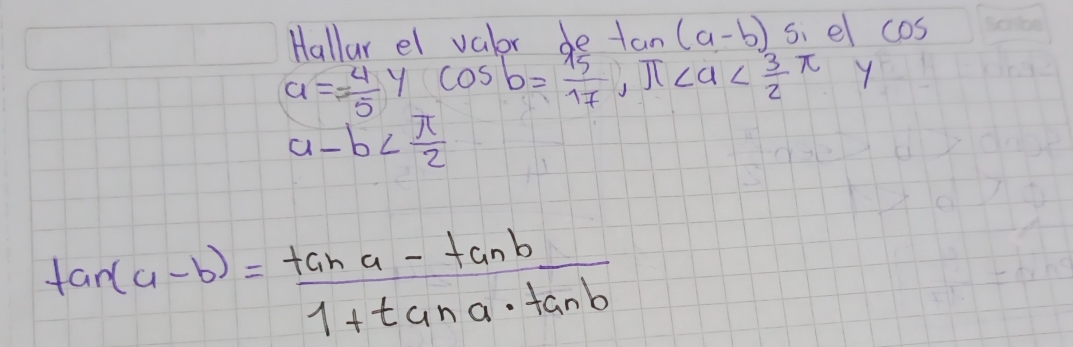 Hallar el valor de tan(a-b) si el cos
a=-4/5 y cos b= 15/17, π<a<3/2 π y
a-b<π/2
tan(a-b) = (tan a - tan b)/(1+tan a·tan b)